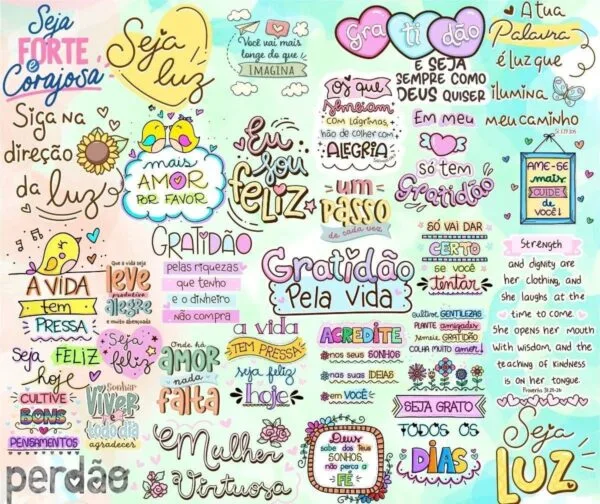 Seja
FORTE
e
Corajosa
Seja
luz
Você vai mais
longe do que
IMAGINA
Gra ti dão
E SEJA
SEMPRE COMO
DEUS QUISER
A tua
Palavra
é luz que
ilumina
meu caminho
Siga na
direção
da luz
mais
AMOR
POR FAVOR
Eu
sou
feliz
OS que
semeiam
COM LÁGRIMAS,
HÃO DE COLHER COM
ALEGRIA
UM
PASSO
de cada vez
Em meu
só tem
Gratidão
AME-SE
mais
CUIDE
DE
VOCÊ!
A VIDA
tem
PRESSA
Que a vida seja
leve
produtiva
alegre
e muito abençoada
GRATIDÃO
pelas riquezas
que tenho
e o dinheiro
não compra
Gratidão
Pela Vida
SÓ VAI DAR
CERTO
SE VOCÊ
tentar
Strength
and dignity are
her clothing, and
she laughs at the
time to come
She opens her mouth
with wisdom, and the
teaching of kindness
is on her tongue
Proverbs 31:25-26
Seja FELIZ
hoje
CULTIVE
BONS
PENSAMENTOS
Seja
feliz
Sonhar
VIVER
e todo dia
agradecer
Onde há
AMOR
nada
falta
a vida
TEM PRESSA
seja feliz
hoje
ACREDITE
nos seus SONHOS
nas suas IDEIAS
em VOCÊ
cultive GENTILEZAS
PLANTE amizades
semeie GRATIDÃO
COLHA MUITO amor!
SEJA GRATO
TODOS OS
DIAS
perdão
Mulher
Virtuosa
Deus
sabe dos Teus
SONHOS,
não perca a
FÉ
Seja
LUZ